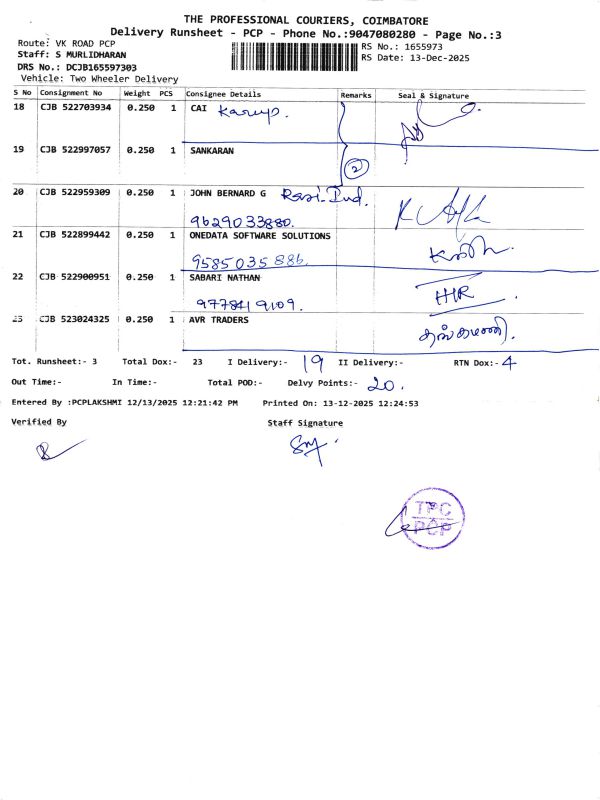 THE PROFESSIONAL COURIERS, COIMBATORE
Delivery Runsheet - PCP - Phone No.:9047080280 - Page No.:3
Route: VK ROAD PCP RS No.: 1655973
Staff: S MURLIDHARAN RS Date: 13-Dec-2025
DRS No.: DCJB165597303
Vehicle: Two Wheeler Delivery
S No Consignment No Weight PCS Consignee Details Remarks Seal & Signature
18 CJB 522703934 0.250 1 CAI
19 CJB 522997057 0.250 1 SANKARAN
2
20 CJB 522959309 0.250 1 JOHN BERNARD G
9629033880.
21 CJB 522899442 0.250 1 ONEDATA SOFTWARE SOLUTIONS
9585035886.
22 CJB 522900951 0.250 1 SABARI NATHAN
9778419109.
23 CJB 523024325 0.250 1 AVR TRADERS தங்கமணி.
Tot. Runsheet:- 3 Total Dox:- 23 I Delivery:- 19 II Delivery:- RTN Dox:- 4
Out Time:- In Time:- Total POD:- Delvy Points:- 20.
Entered By :PCPLAKSHMI 12/13/2025 12:21:42 PM Printed On: 13-12-2025 12:24:53
Verified By Staff Signature
TPC
PCP